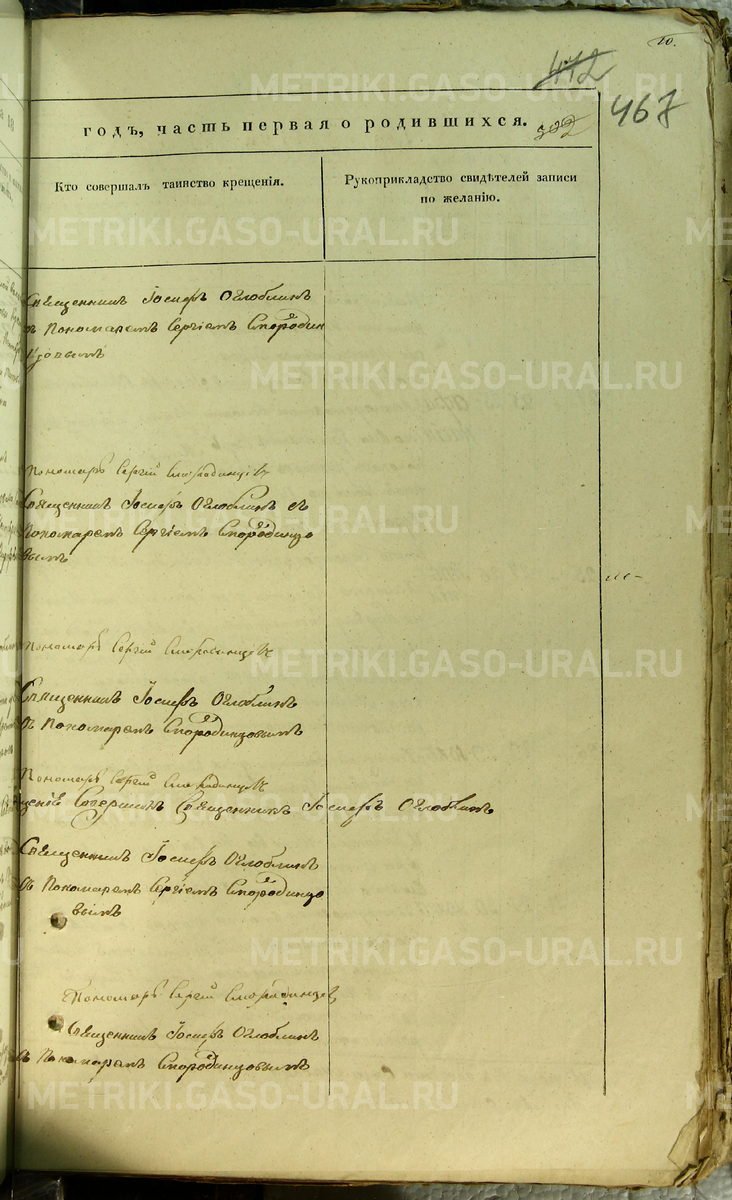 10.
472
467
годъ, часть первая о родившихся.
302
Кто совершалъ таинство крещенія.
Рукоприкладство свидѣтелей записи
по желанію.
Священникъ Іосифъ Оглоблинъ
съ Пономаремъ Сергіемъ Смородин
цовымъ
Пономарь Сергій Смородинцовъ
Священникъ Іосифъ Оглоблинъ съ
Пономаремъ Сергіемъ Смородинцо
вымъ
Пономарь Сергій Смородинцовъ
Священникъ Іосифъ Оглоблинъ
съ Пономаремъ Смородинцовымъ
Пономарь Сергій Смородинцовъ
щеніе Совершилъ Священникъ Іосифъ Оглоблинъ
Священникъ Іосифъ Оглоблинъ
съ Пономаремъ Сергіемъ Смородинцо
вымъ
Пономарь Сергій Смородинцов
Священникъ Іосифъ Оглоблинъ
съ Пономаремъ Смородинцовымъ
METRIKI.GASO-URAL.RU